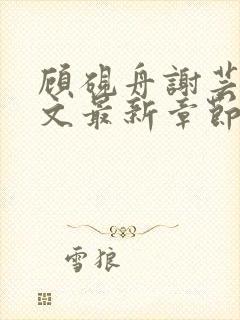 顾砚舟謝芸
文最新章節
雪狼